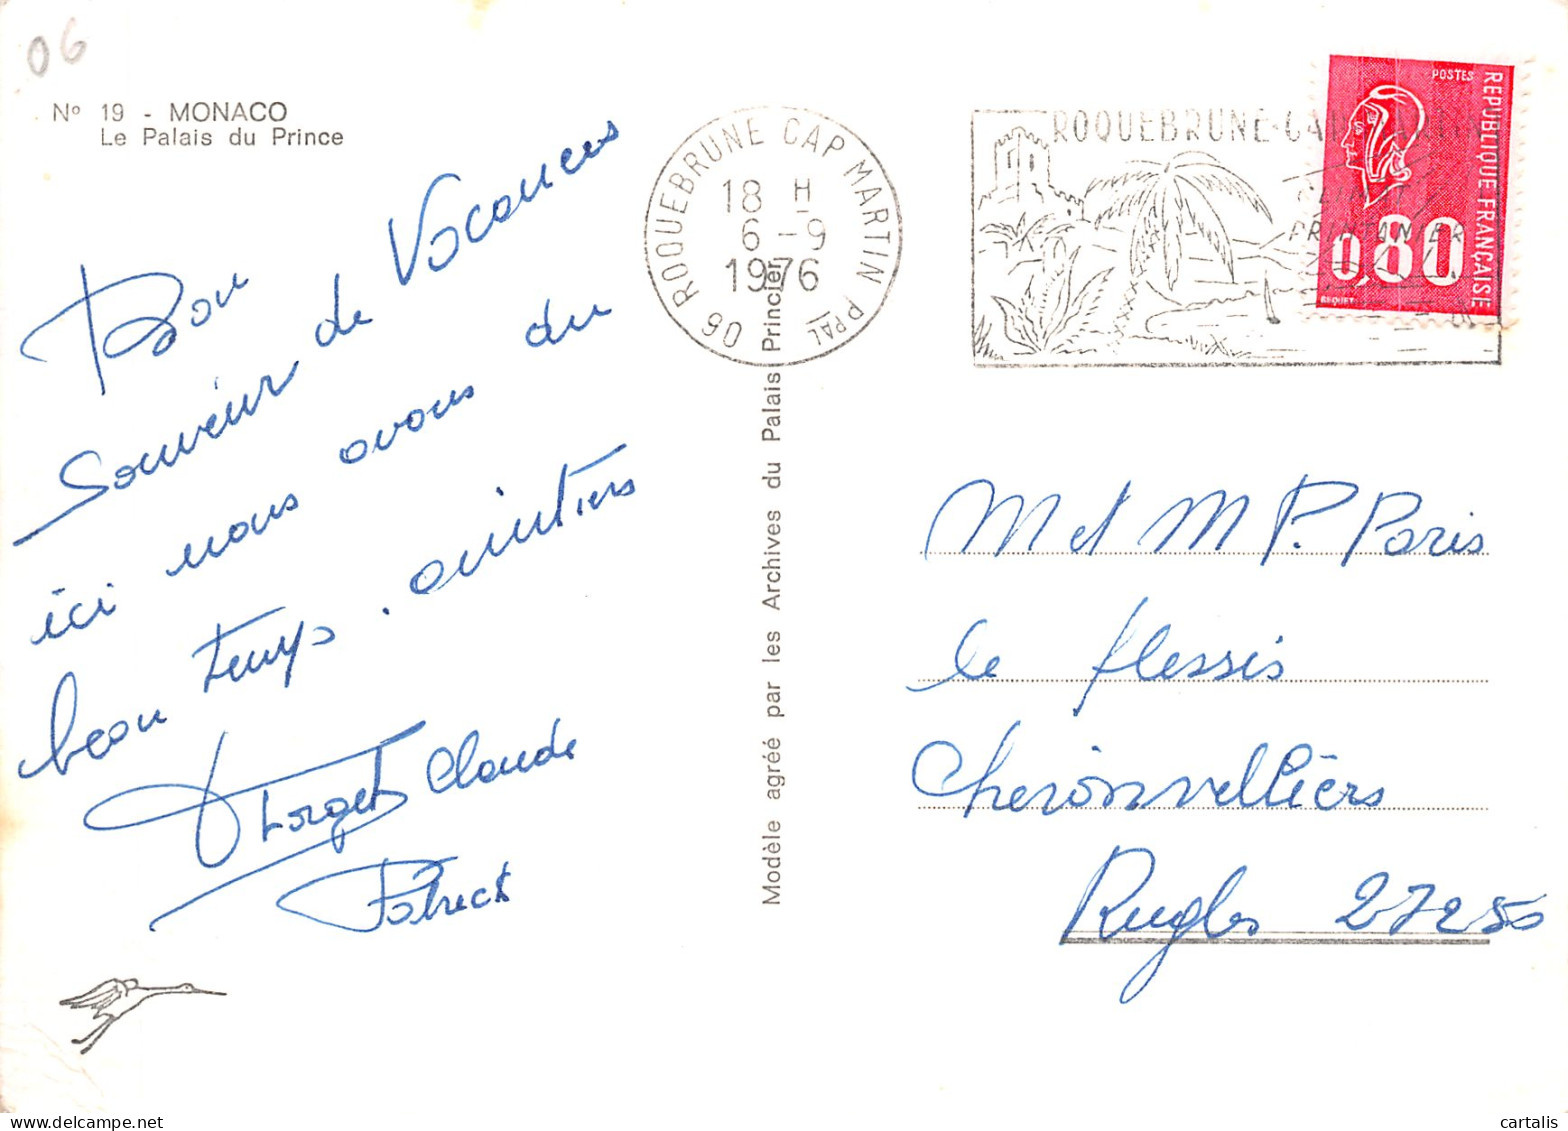 06
N° 19 - MONACO
Le Palais du Prince
Bon
Souvenir de Vacances
ici nous avons du
beau temps. amitiers
Claude
Patrick
Modèle agréé par les Archives du Palais Princier
06 ROQUEBRUNE CAP MARTIN PPAL
18 H
6 - 9
1976
ROQUEBRUNE-CAP MARTIN
PRINTANIER
POSTES
REPUBLIQUE FRANÇAISE
0,80
BEQUET
M et M P. Paris
le flessis
Cheronvelliers
Rugles 27250
cartalis